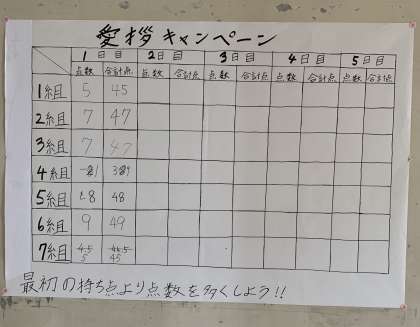 愛拶キャンペーン
1日目 2日目 3日目 4日目 5日目
点数 合計点 点数 合計点 点数 合計点 点数 合計点 点数 合計点
1組 5 45
2組 7 47
3組 7 47
4組
5組 8 48
6組 9 49
7組 4.5 44.5
5 45
最初の持ち点より点数を多くしよう!!